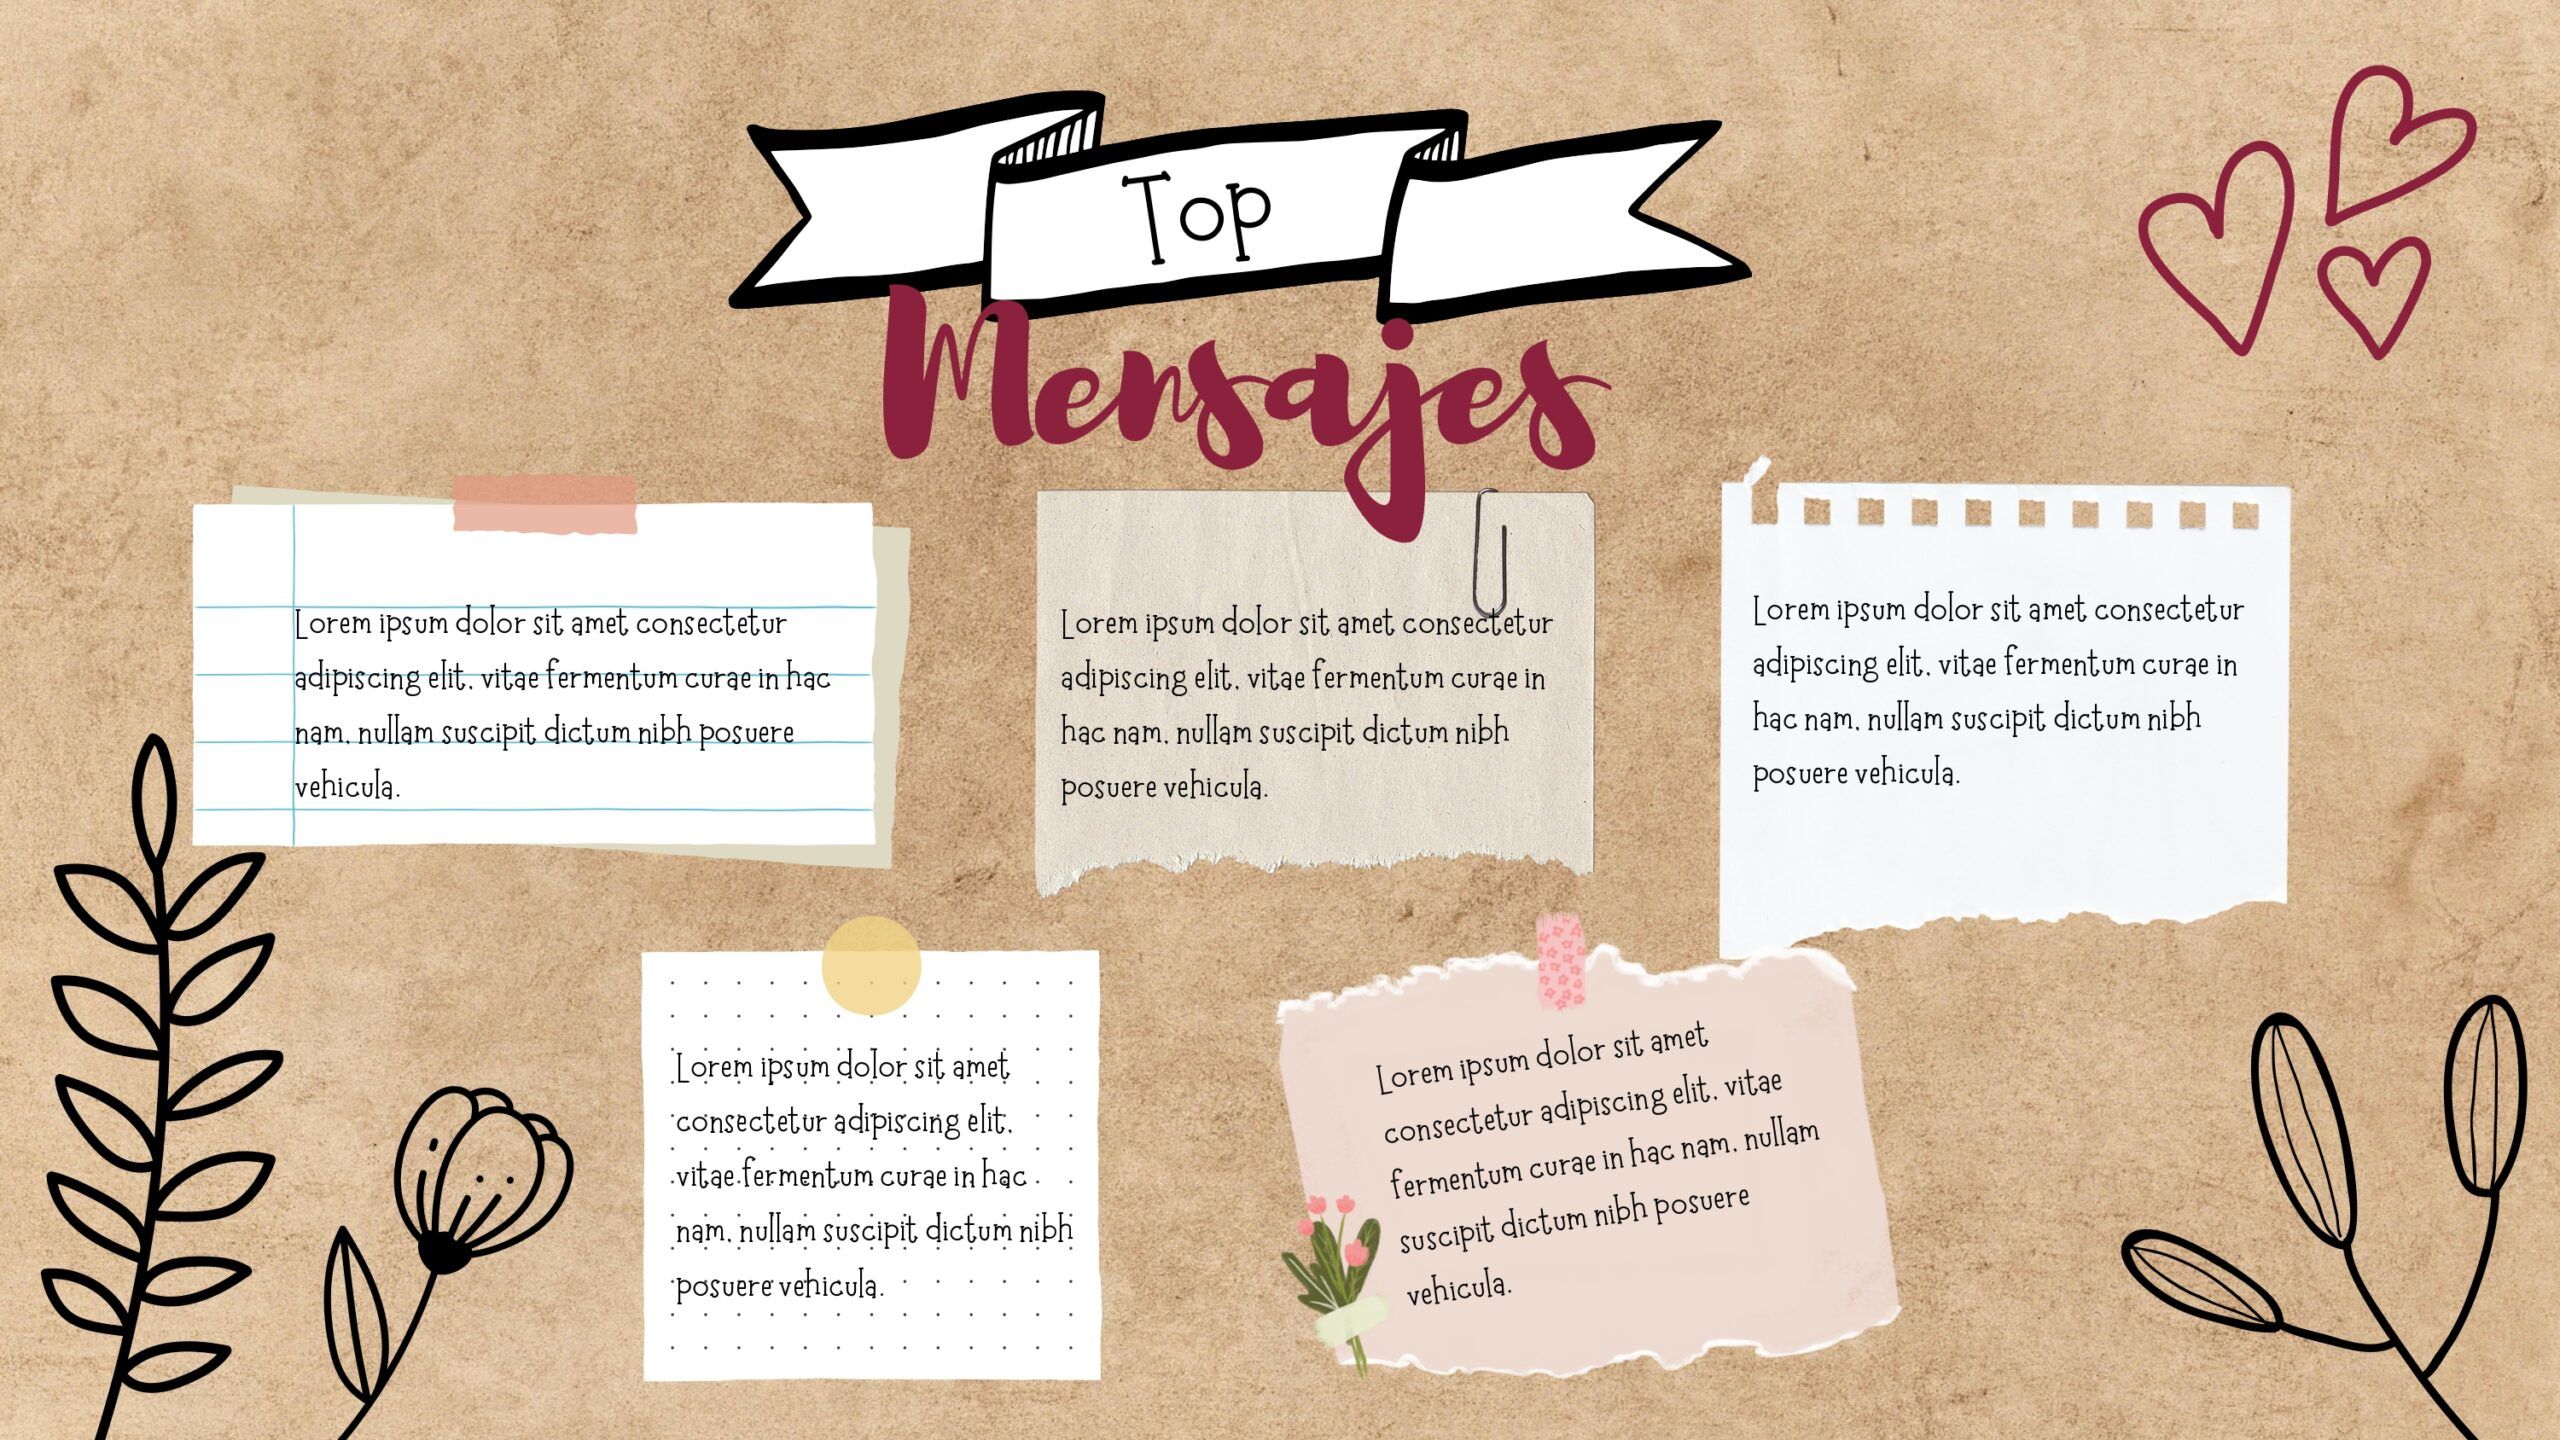 Top
Mensajes
Lorem ipsum dolor sit amet consectetur
adipiscing elit, vitae fermentum curae in hac
nam, nullam suscipit dictum nibh posuere
vehicula.
Lorem ipsum dolor sit amet consectetur
adipiscing elit, vitae fermentum curae in
hac nam, nullam suscipit dictum nibh
posuere vehicula.
Lorem ipsum dolor sit amet consectetur
adipiscing elit, vitae fermentum curae in
hac nam, nullam suscipit dictum nibh
posuere vehicula.
Lorem ipsum dolor sit amet
consectetur adipiscing elit,
vitae fermentum curae in hac
nam, nullam suscipit dictum nibh
posuere vehicula.
Lorem ipsum dolor sit amet
consectetur adipiscing elit, vitae
fermentum curae in hac nam, nullam
suscipit dictum nibh posuere
vehicula.